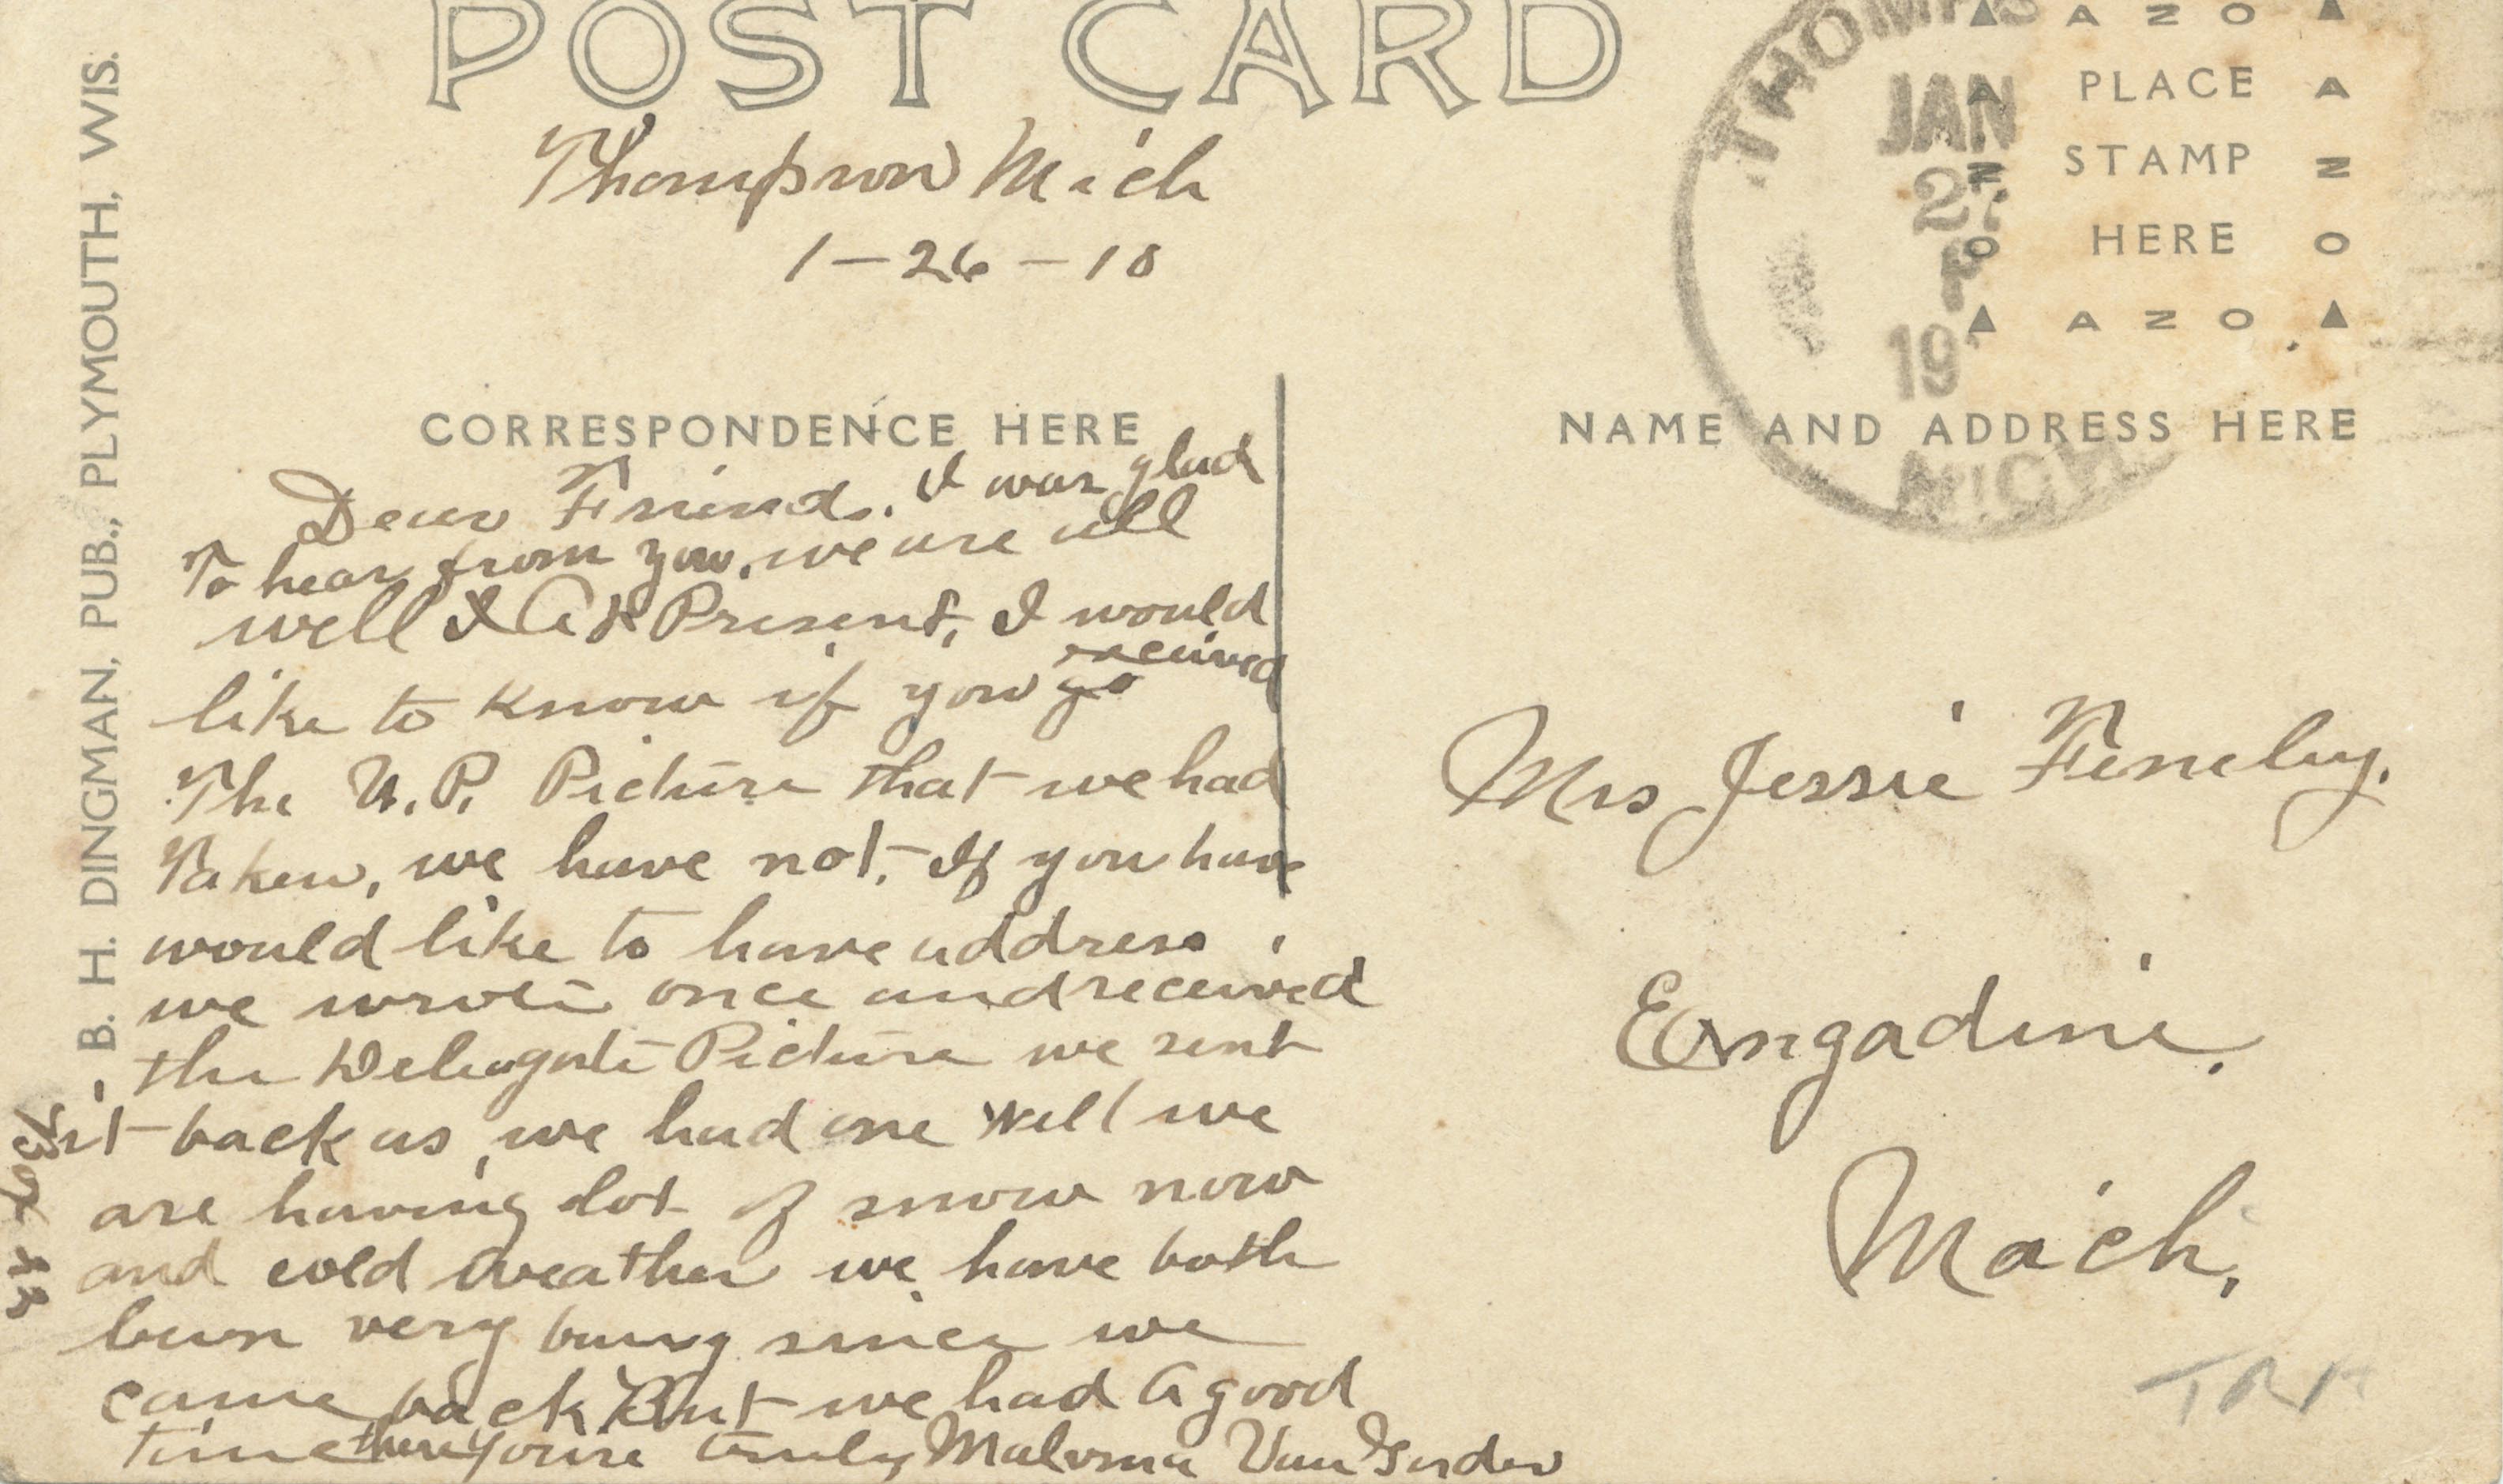 POST CARD
Thompson Mich
1-26-18
B. H. DINGMAN, PUB., PLYMOUTH, WIS.
CORRESPONDENCE HERE
Dear Friend. I was glad
To hear from you. we are all
well & At Present, I would
received
like to know if you
The U.P. Picture that we had
Taken, we have not, If you have
would like to have address
we wrote once and received
the Delagate Picture we sent
it back as we had one Well we
are having lot of snow now
and cold weather we have both
been very busy since we
came back But we had A good
time there Yours truly, Malvina Van
THOMPS
JAN
27
P
19
MICH.
AZO
PLACE
STAMP
HERE
AZO
AZO
AZO
NAME AND ADDRESS HERE
Mrs Jessie
Engadine.
Mich,